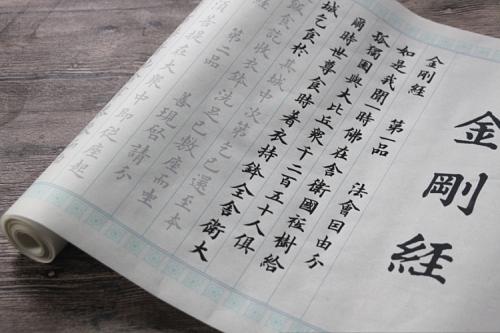 金剛經
金剛經
第一品 法會因由分
如是我聞一時佛在舍衛國祇樹給
孤獨園與大比丘眾千二百五十人俱
爾時世尊食時着衣持鉢入舍衛大
城乞食於其城中次第乞已還至本
飯食訖收衣鉢洗足已敷座而坐
第二品 善現啟請分
須菩提在大眾中即從座起